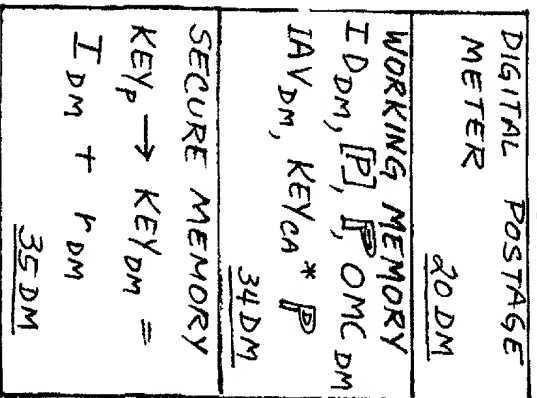 DIGITAL POSTAGE
METER
20 DM
WORKING MEMORY
ID_DM, [P], ℙ, OMC_DM
IAV_DM, KEY_CA * ℙ
34 DM
SECURE MEMORY
KEY_P → KEY_DM =
I_DM + r_DM
35 DM